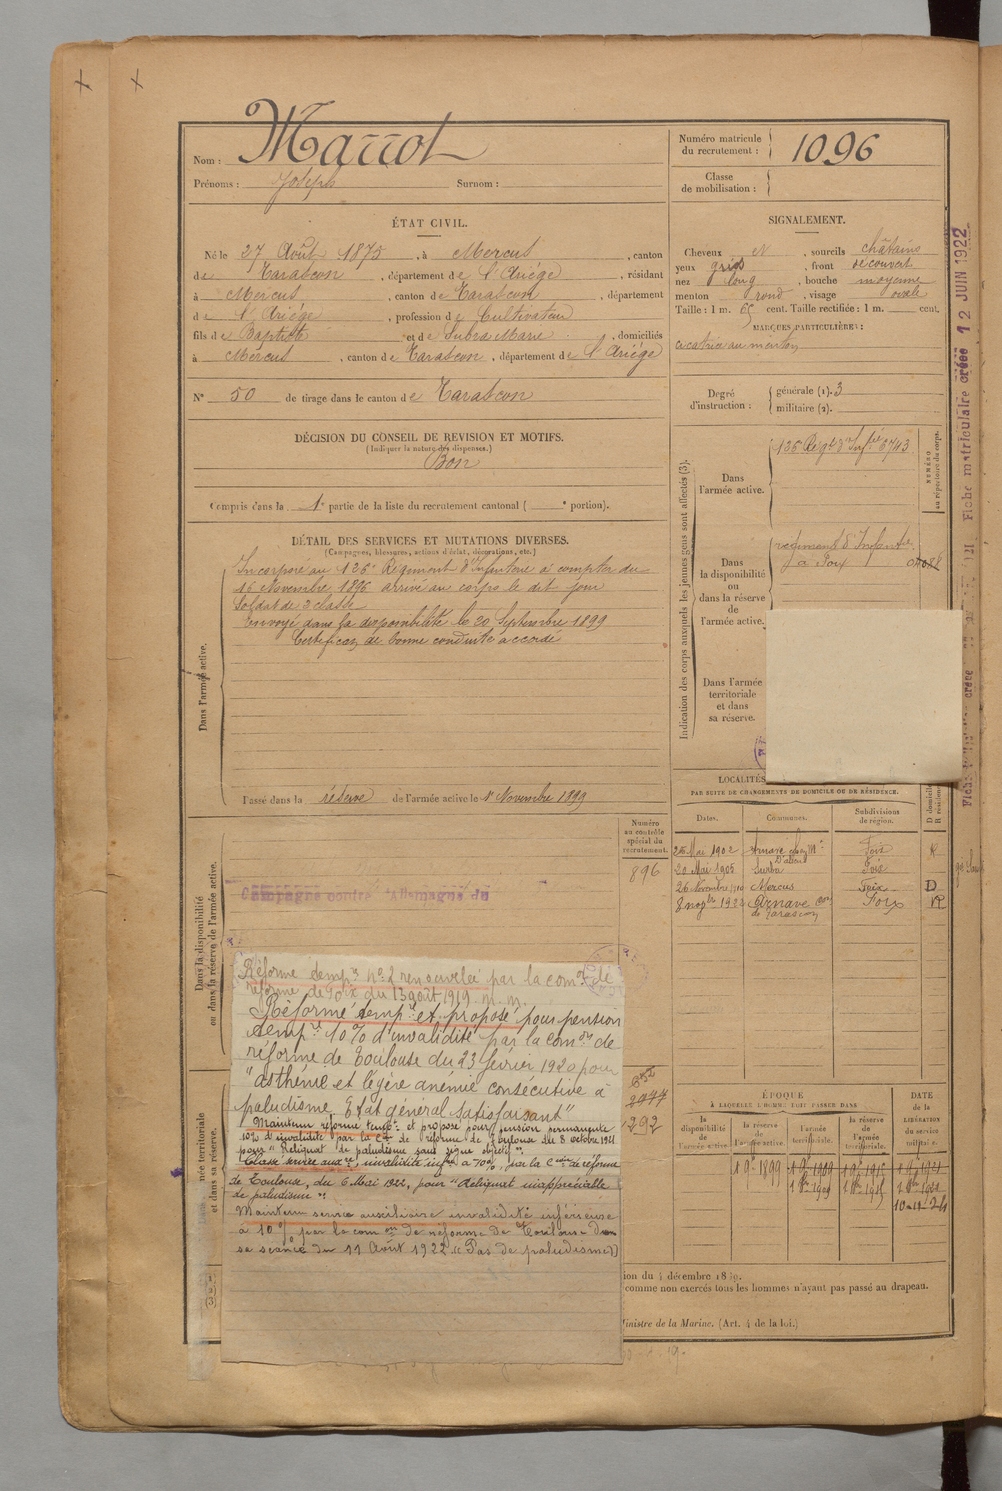 Nom : Marrot
Prénoms : Joseph Surnom :
Numéro matricule du recrutement : 1096
Classe de mobilisation :
ÉTAT CIVIL.
Né le 27 Août 1875, à Mercus, canton
de Tarascon, département de l'Ariège, résidant
à Mercus, canton de Tarascon, département
de l'Ariège, profession de Cultivateur
fils de Baptiste et de Subra Marie, domiciliés
à Mercus, canton de Tarascon, département de l'Ariège
N° 50 de tirage dans le canton de Tarascon
DÉCISION DU CONSEIL DE REVISION ET MOTIFS.
(Indiquer la nature des dispenses.)
Bon
Compris dans la 1e partie de la liste du recrutement cantonal ( e portion).
DÉTAIL DES SERVICES ET MUTATIONS DIVERSES.
(Campagnes, blessures, actions d'éclat, décorations, etc.)
Dans l'armée active.
Incorporé au 126e Régiment d'Infanterie à compter du
16 Novembre 1896 arrivé au corps le dit jour
Soldat de 2 classe
Envoyé dans la disponibilité le 20 Septembre 1899
Certificat de bonne conduite accordé
Passé dans la réserve de l'armée active le 1r Novembre 1899
Dans la disponibilité
ou dans la réserve de l'armée active.
Numéro
au contrôle
spécial du
recrutement.
896
Campagne contre l'Allemagne du
Réforme tempre no 2 renouvelée par la comon de
réforme de Foix du 13 août 1919. m. m.
Réformé tempre et proposé pour pension
tempre 10% d'invalidité par la comon de
réforme de Toulouse du 23 février 1920 pour
"asthénie et légère anémie consécutive à
paludisme. Etat général satisfaisant"
Maintenu réforme tempre et proposé pour pension permanente
10% d'invalidité par la Con de réforme de Toulouse du 8 octobre 1921
pour "Reliquat de paludisme sans signe objectif".
Classé service auxre, invalidité infre à 10%, par la Con de réforme
de Toulouse, du 6 Mai 1922, pour "déliquat inappréciable
de paludisme".
Maintenu service auxiliaire invalidité inférieure
à 10% par la comon de réforme de Toulouse dans
sa séance du 11 Août 1922 (Pas de paludisme)
1292
née territoriale
et dans sa réserve.
SIGNALEMENT.
Cheveux N, sourcils châtains
yeux gris, front découvert
nez long, bouche moyenne
menton rond, visage ovale
Taille : 1 m. 65 cent. Taille rectifiée : 1 m. cent.
MARQUES PARTICULIÈRES :
cicatrice au menton
Degré d'instruction : générale (1). 3
militaire (2).
Indication des corps auxquels les jeunes gens sont affectés (3).
NUMÉRO
au répertoire du corps.
Dans
l'armée active.
126 Régt d'Infie 6743
Dans
la disponibilité
ou
dans la réserve
de
l'armée active.
régiment d'Infanterie
à Foix
Dans l'armée
territoriale
et dans
sa réserve.
LOCALITÉS
PAR SUITE DE CHANGEMENTS DE DOMICILE OU DE RÉSIDENCE.
Dates. Communes. Subdivisions de région.
25 Mai 1902 Arnave Foix R
20 Mai 1905 Surba Foix
26 Novembre 1910 Mercus Foix D
Arnave con de Tarascon Foix R
ÉPOQUE
À LAQUELLE L'HOMME DOIT PASSER DANS
la disponibilité de l'armée active
la réserve de l'armée active.
l'armée territoriale.
la réserve de l'armée territoriale.
DATE
de la
LIBÉRATION
du service
militaire.
1 9bre 1899 1 9bre 1909 1 9bre 1915 1 9bre 1921
ion du 4 décembre 18
comme non exercés tous les hommes n'ayant pas passé au drapeau.
Ministre de la Marine. (Art. 4 de la loi.)
Fiche matriculaire créée 12 JUIN 1922